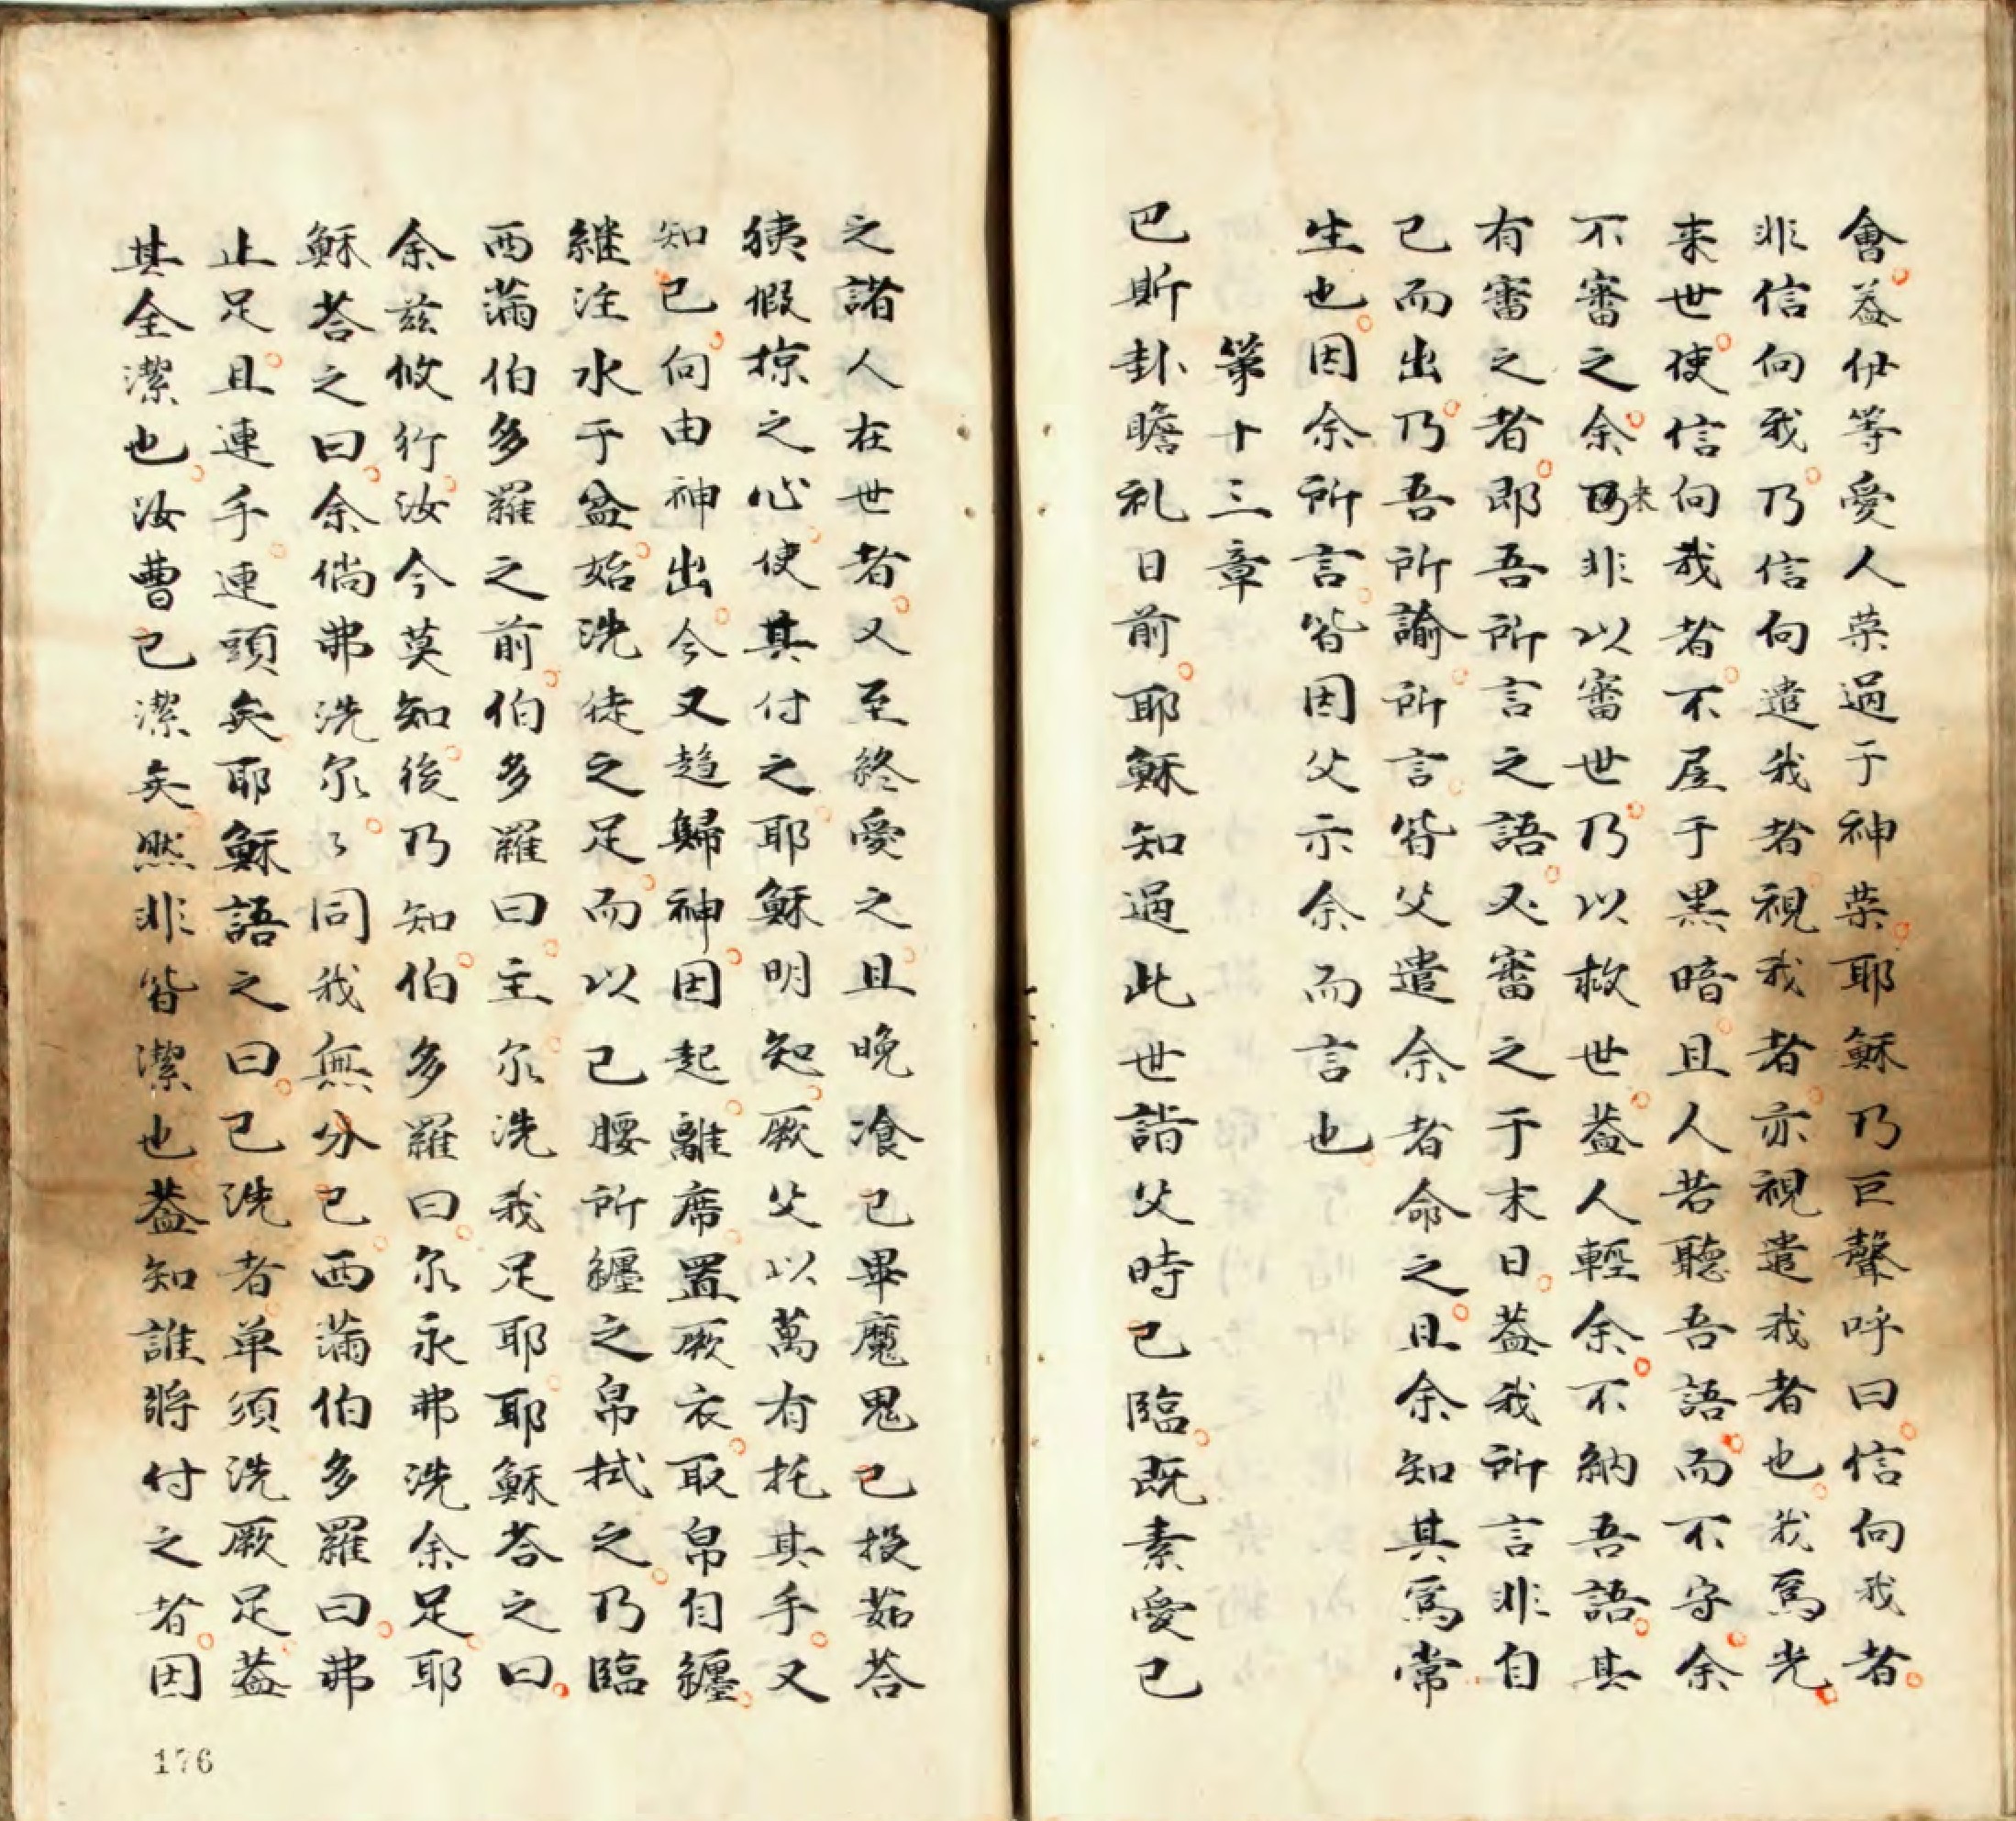 會蓋伊等愛人荣過于神荣耶穌乃巨聲呼曰信向我者
非信向我乃信向遣我者視我者亦視遣我者也我爲光
来世使信向我者不居于黒暗且人若聽吾語而不守余
不審之余来非以審世乃以救世蓋人輕余不納吾語其
有審之者即吾所言之語又審之于末日蓋我所言非自
己而出乃吾所諭所言皆父遣余者命之且余知其爲常
生也因余所言皆因父示余而言也
第十三章
巴斯卦瞻礼日前耶穌知過此世詣父時已臨既素愛己
之諸人在世者又至終愛之且晚飡已畢魔鬼已投茹荅
猠假掠之心使其付之耶穌明知厥父以萬有托其手又
知己向由神出今又趋歸神因起離席置厥衣取帛自纏
継注水于盆始洗徒之足而以己腰所纏之帛拭之乃臨
西滿伯多羅之前伯多羅曰主尔洗我足耶耶穌荅之曰
余兹攸行汝今莫知後乃知伯多羅曰尔永弗洗余足耶
穌荅之曰余倘弗洗尔々同我無分已西滿伯多羅曰弗
止足且連手連頭矣耶穌語之曰已洗者单須洗厥足蓋
其全潔也汝曹已潔矣然非皆潔也蓋知誰將付之者因
176